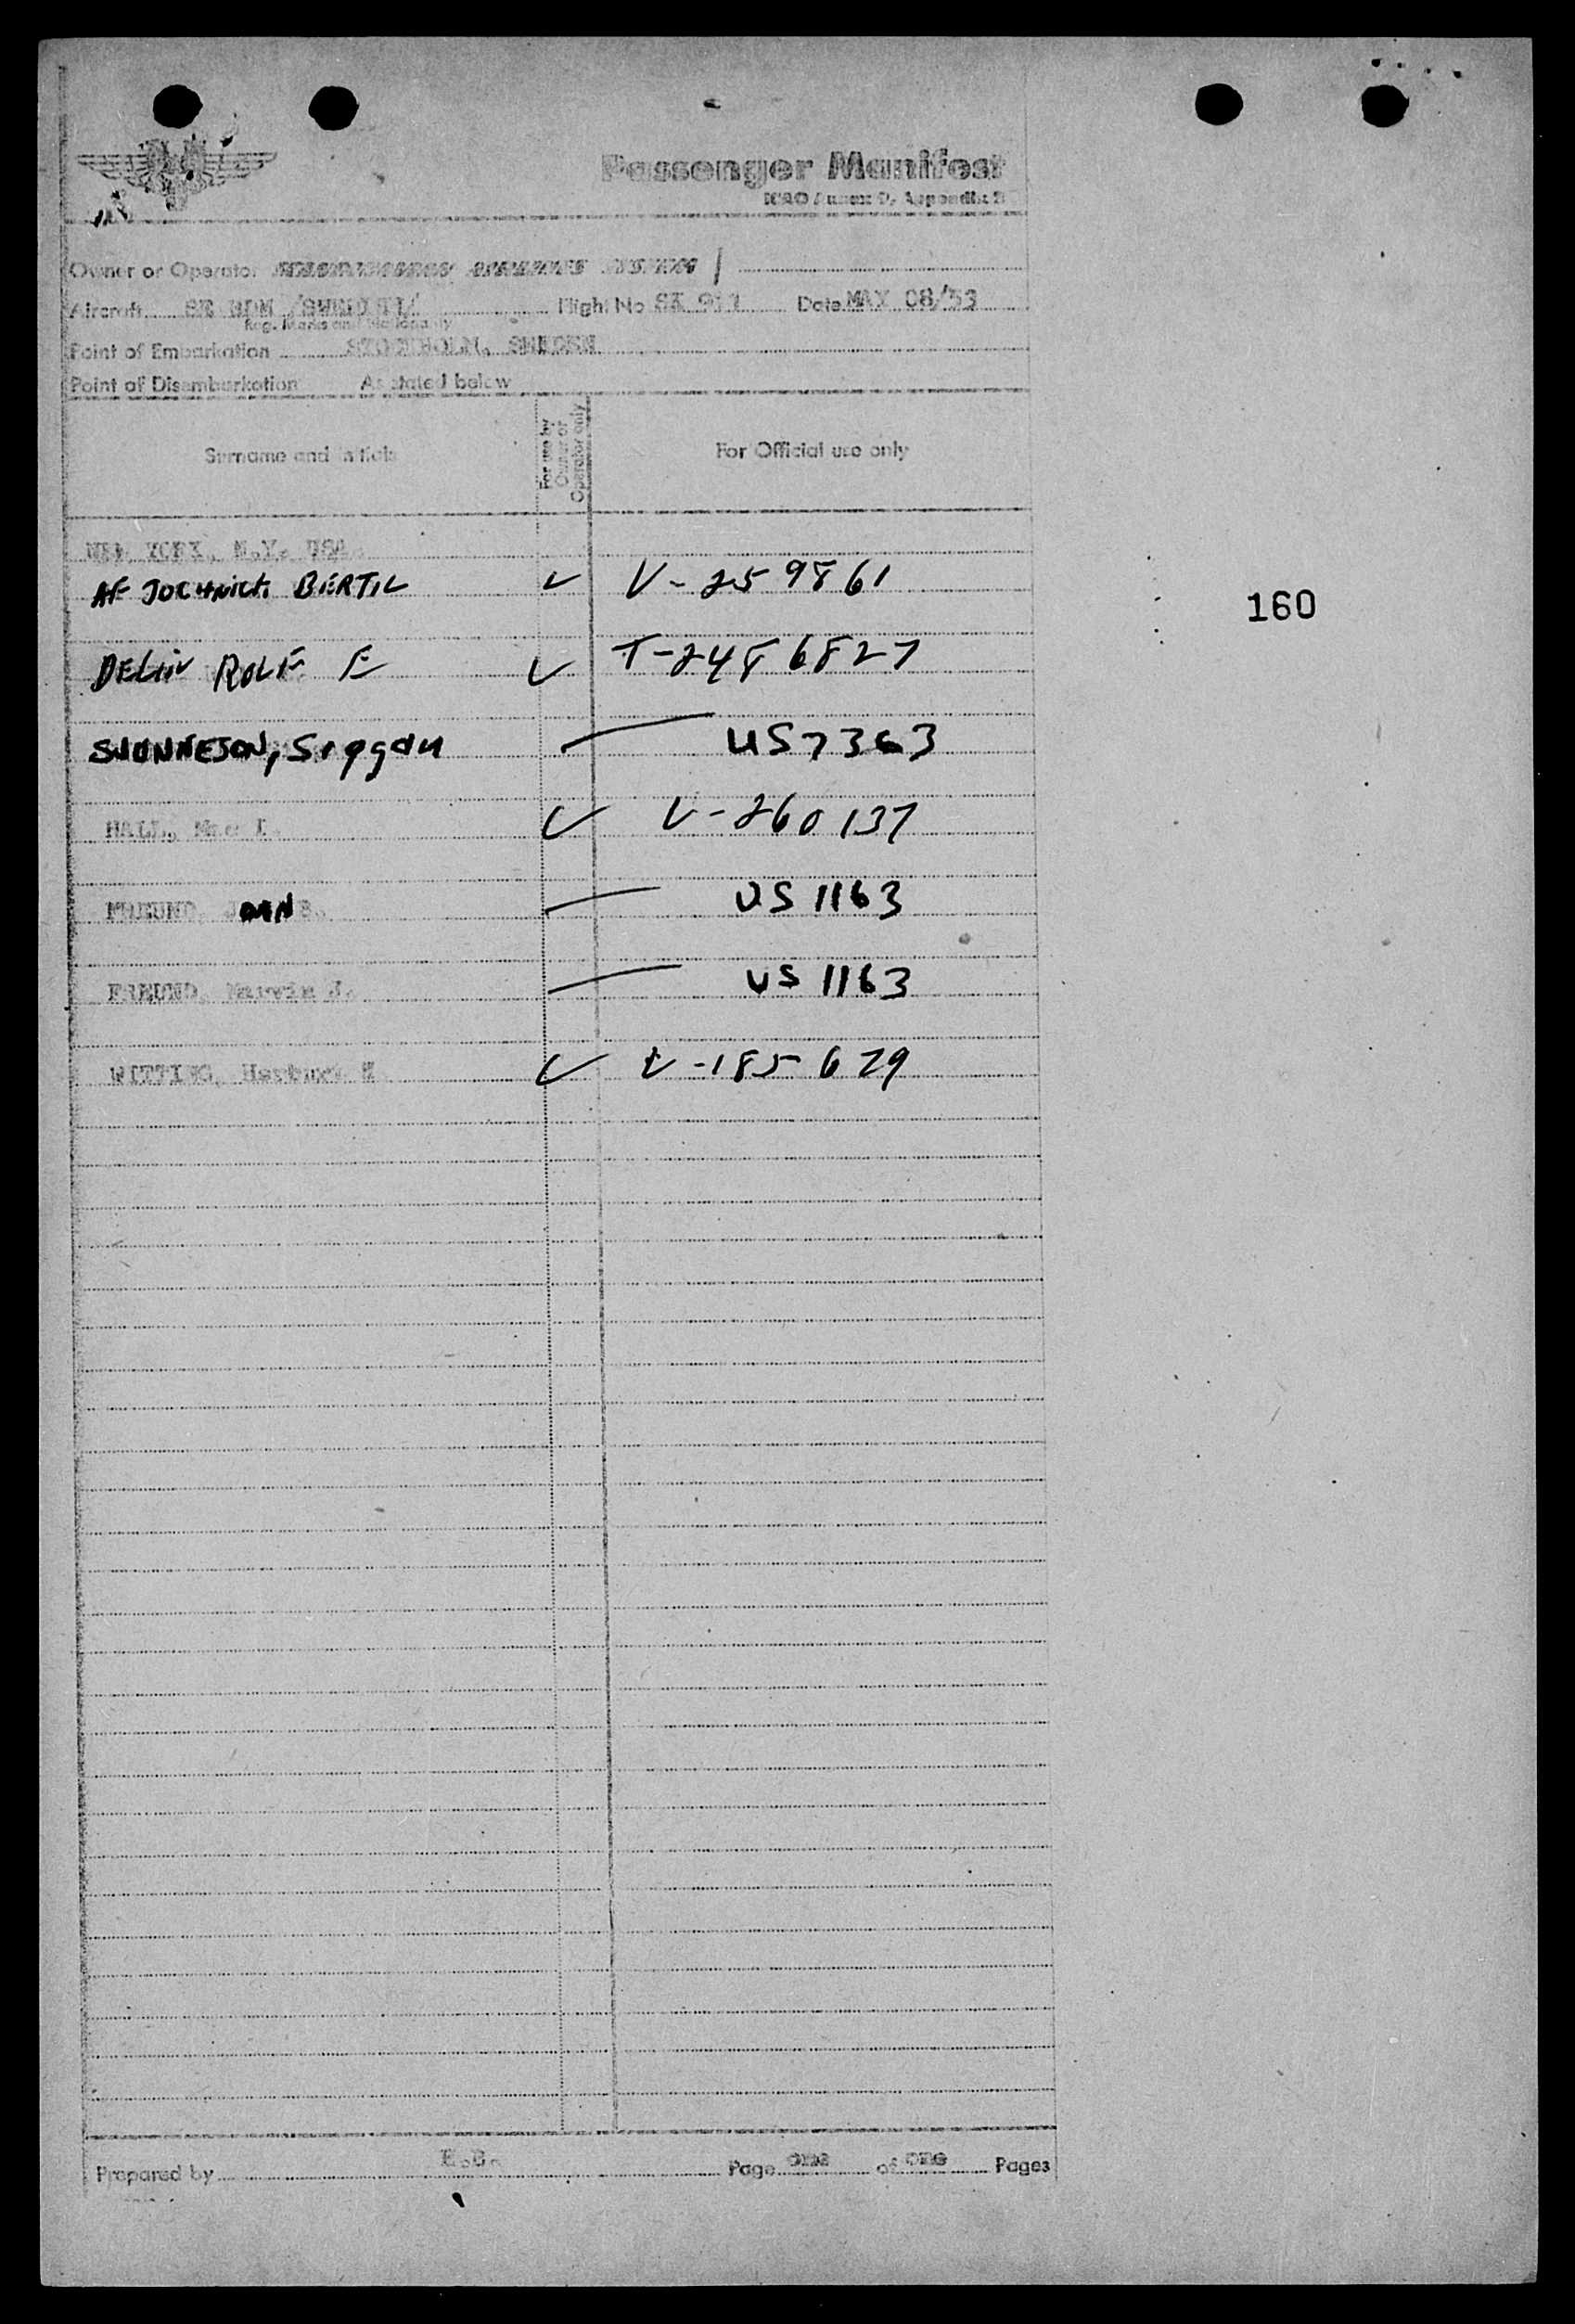 Passenger Manifest
ICAO Annex 9, Appendix
Owner or Operator SCANDINAVIAN AIRLINES SYSTEM
Aircraft SE BDM /SWEDISH/ Flight No SK 911 Date MAY 08/53
Reg. Marks and Nationality
Point of Embarkation STOCKHOLM, SWEDEN
Point of Disembarkation As stated below
Surname and initials
For use by Owner or Operator only
For Official use only
NEW YORK, N.Y. USA
AF JOCHNICK BERTIL V-259861
160
ROLF E T-2486827
Siggan US7363
HALL, V-260137
FREUND, JOAN US 1163
FREUND, Marvin J. US 1163
WITTING, V-185679
Prepared by Page one of one Pages